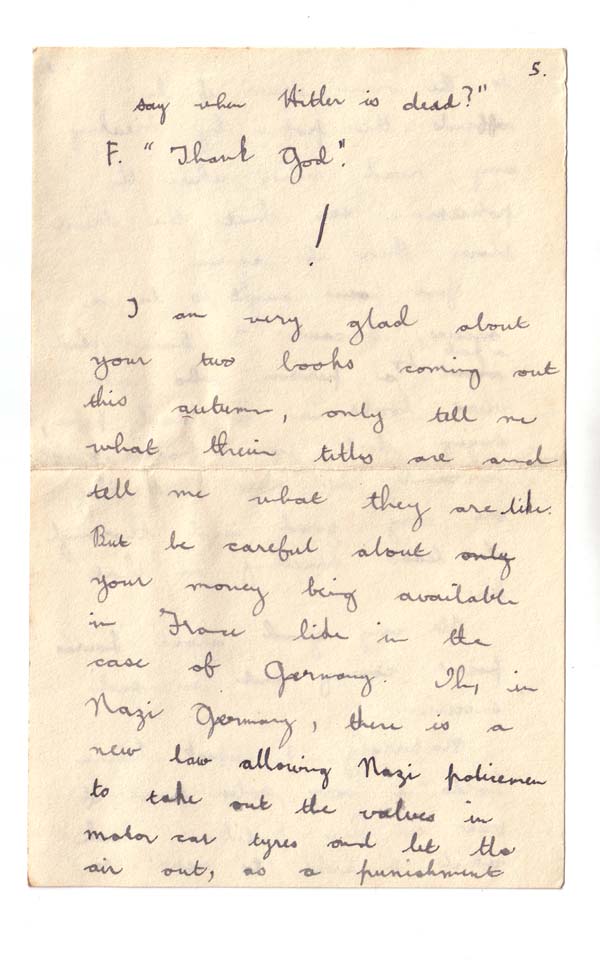 5.
say when Hitler is dead?"
F. "Thank God".
!
I am very glad about
your two books coming out
this autumn, only tell me
what their titles are and
tell me what they are like.
But be careful about only
your money being available
in France like in the
case of Germany. Oh, in
Nazi Germany, there is a
new law allowing Nazi policemen
to take out the valves in
motor car tyres and let the
air out, as a punishment